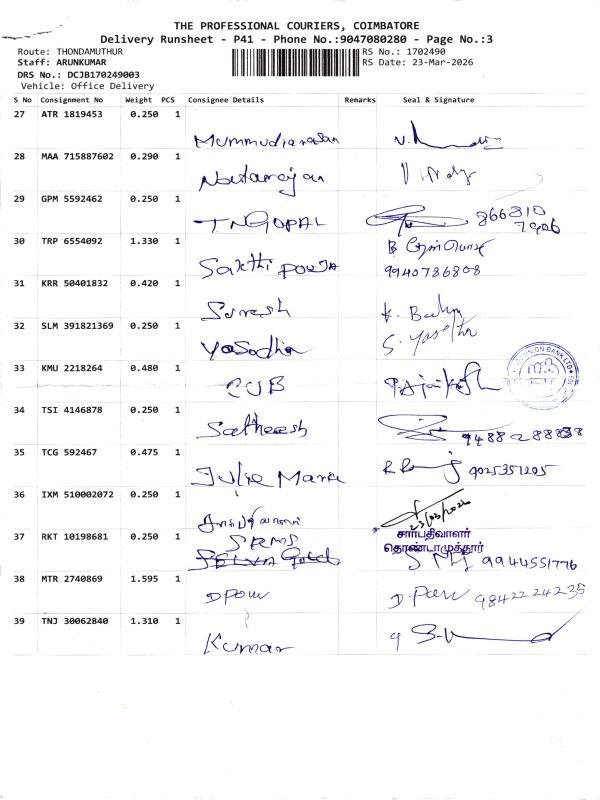 THE PROFESSIONAL COURIERS, COIMBATORE
Delivery Runsheet - P41 - Phone No.:9047080280 - Page No.:3
Route: THONDAMUTHUR RS No.: 1702490
Staff: ARUNKUMAR RS Date: 23-Mar-2026
DRS No.: DCJB170249003
Vehicle: Office Delivery
S No Consignment No Weight PCS Consignee Details Remarks Seal & Signature
27 ATR 1819453 0.250 1
Mummudianasan
28 MAA 715887602 0.290 1
29 GPM 5592462 0.250 1
TNGOPAL 866810
7906
30 TRP 6554092 1.330 1
Sakthi pooja 9940786808
31 KRR 50401832 0.420 1
Suresh
32 SLM 391821369 0.250 1
Yasodha S. Yasodha
33 KMU 2218264 0.480 1
UNION BANK LTD
CUB
34 TSI 4146878 0.250 1
Satheesh 9488288838
35 TCG 592467 0.475 1
Julie Maria 9025351205
36 IXM 510002072 0.250 1
23/03/2026
சார்பதிவாளர்
தொண்டாமுத்தூர்
37 RKT 10198681 0.250 1
SRMS
SELVA Gold 9944551776
38 MTR 2740869 1.595 1
DPOW 9842224235
39 TNJ 30062840 1.310 1
Kumar